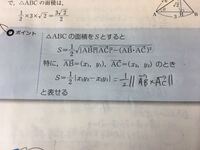 △ABC の面積は,
1/2×3×√2=3√2/2
ポイント
△ABC の面積を S とすると
S=1/2√|AB|²|AC|²−(AB・AC)²
特に, AB=(x₁, y₁), AC=(x₂, y₂) のとき
S=1/2|x₁y₂−x₂y₁| =1/2||AB×AC||
と表せる